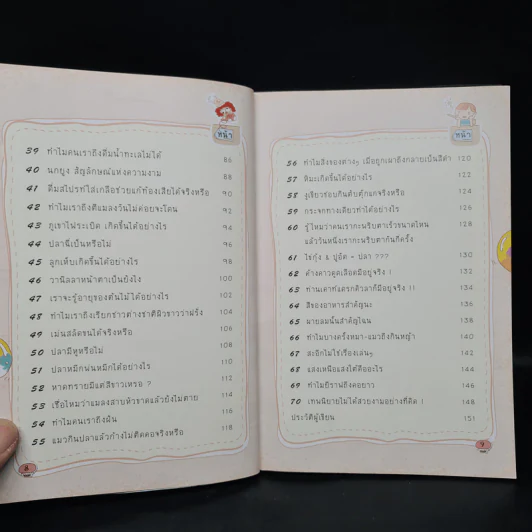 หน้า
39 ทำไมคนเราถึงดื่มน้ำทะเลไม่ได้ 86
40 นกยูง สัญลักษณ์แห่งความงาม 88
41 ดื่มสไปรท์ใส่เกลือช่วยแก้ท้องเสียได้จริงหรือ 90
42 ทำไมเราถึงตีแมลงวันไม่ค่อยจะโดน 92
43 ภูเขาไฟระเบิด เกิดขึ้นได้อย่างไร 94
44 ปลาฉี่เป็นหรือไม่ 96
45 ลูกเห็บเกิดขึ้นได้อย่างไร 98
46 วานิลลาหน้าตาเป็นยังไง 100
47 เราจะรู้อายุของต้นไม้ได้อย่างไร 102
48 ทำไมเราถึงเรียกชาวต่างชาติผิวขาวว่าฝรั่ง 104
49 เม่นสลัดขนได้จริงหรือ 106
50 ปลามีหูหรือไม่ 108
51 ปลาหมึกพ่นหมึกได้อย่างไร 110
52 หาดทรายมีแต่สีขาวเหรอ ? 112
53 เชื่อไหมว่าแมลงสาบหัวขาดแล้วยังไม่ตาย 114
54 ทำไมคนเราถึงฝัน 116
55 แมวกินปลาแล้วก้างไม่ติดคอจริงหรือ 118
8
หน้า
56 ทำไมสิ่งของต่างๆ เมื่อถูกเผาถึงกลายเป็นสีดำ 120
57 หิมะเกิดขึ้นได้อย่างไร 122
58 งูเขียวชอบกินตับตุ๊กแกจริงหรือ 124
59 กระจกทางเดียวทำได้อย่างไร 126
60 รู้ไหมว่าคนเรากะพริบตาเร็วขนาดไหน 128
แล้ววันหนึ่งเรากะพริบตากันกี่ครั้ง
61 ไข่กุ้ง & ปูอัด - ปลา ??? 130
62 ค้างคาวดูดเลือดมีอยู่จริง ! 132
63 ท่านเคาท์แดรกคิวลาก็มีอยู่จริง !! 134
64 สีของอาหารสำคัญนะ 136
65 ผายลมนั้นสำคัญไฉน 138
66 ทำไมบางครั้งหมา-แมวถึงกินหญ้า 140
67 สะอึกไม่ใช่เรื่องเล่นๆ 142
68 แสงเหนือแสงใต้คืออะไร 144
69 ทำไมยีราฟถึงคอยาว 146
70 เทพนิยายไม่ได้สวยงามอย่างที่คิด ! 148
ประวัติผู้เขียน 151
9